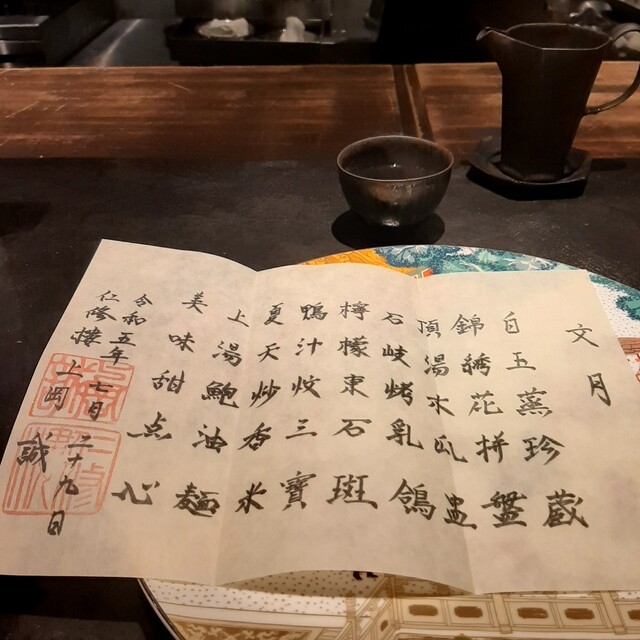 文月
白玉蒸珍蔵
錦綉花拼盤
頂湯水瓜盅
石岐烤乳鴿
檸檬東石斑
鴨汁炆三寶
夏天炒香米
上湯鮑油麺
美味甜点心
令和五年七月二十九日
仁修樓 上岡誠